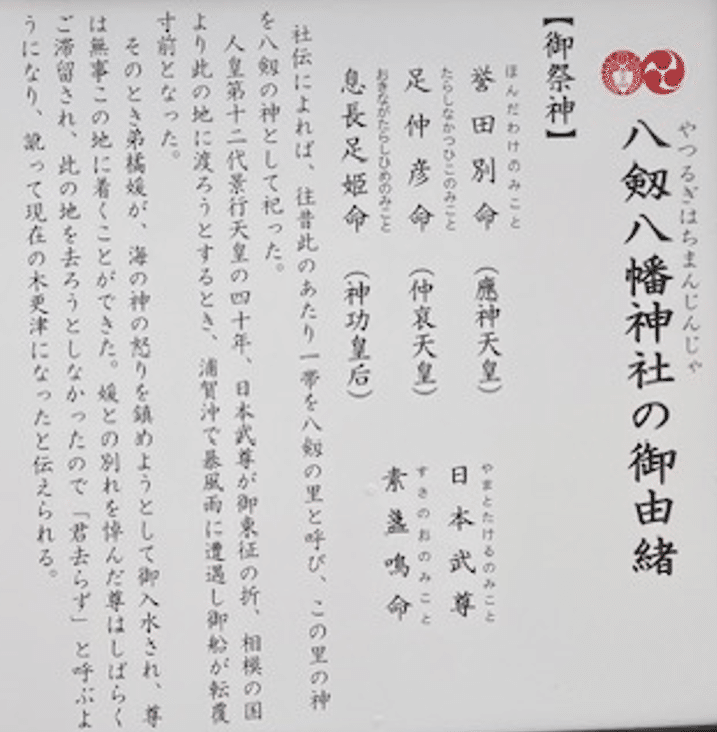 やつるぎはちまんじんじゃ
八剱八幡神社の御由緒
【御祭神】
ほんだわけのみこと
誉田別命(應神天皇)
たらしなかつひこのみこと
足仲彦命(仲哀天皇)
おきながたらしひめのみこと
息長足姫命(神功皇后)
やまとたけるのみこと
日本武尊
すさのおのみこと
素盞嗚命
社伝によれば、往昔此のあたり一帯を八剱の里と呼び、この里の神
を八剱の神として祀った。
人皇第十二代景行天皇の四十年、日本武尊が御東征の折、相模の国
より此の地に渡ろうとするとき、浦賀沖で暴風雨に遭遇し御船が転覆
寸前となった。
そのとき弟橘媛が、海の神の怒りを鎮めようとして御入水され、尊
は無事この地に着くことができた。媛との別れを悼んだ尊はしばらく
ご滞留され、此の地を去ろうとしなかったので「君去らず」と呼ぶよ
うになり、訛って現在の木更津になったと伝えられる。